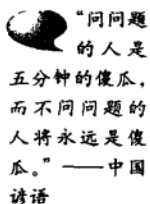 “问问题
的人是
五分钟的傻瓜，
而不问问题的
人将永远是傻
瓜。”——中国
谚语